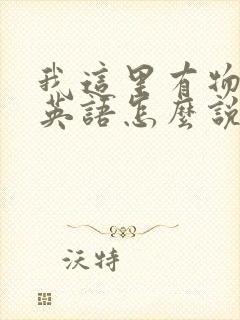 我這里有物
英語怎麼說
沃特